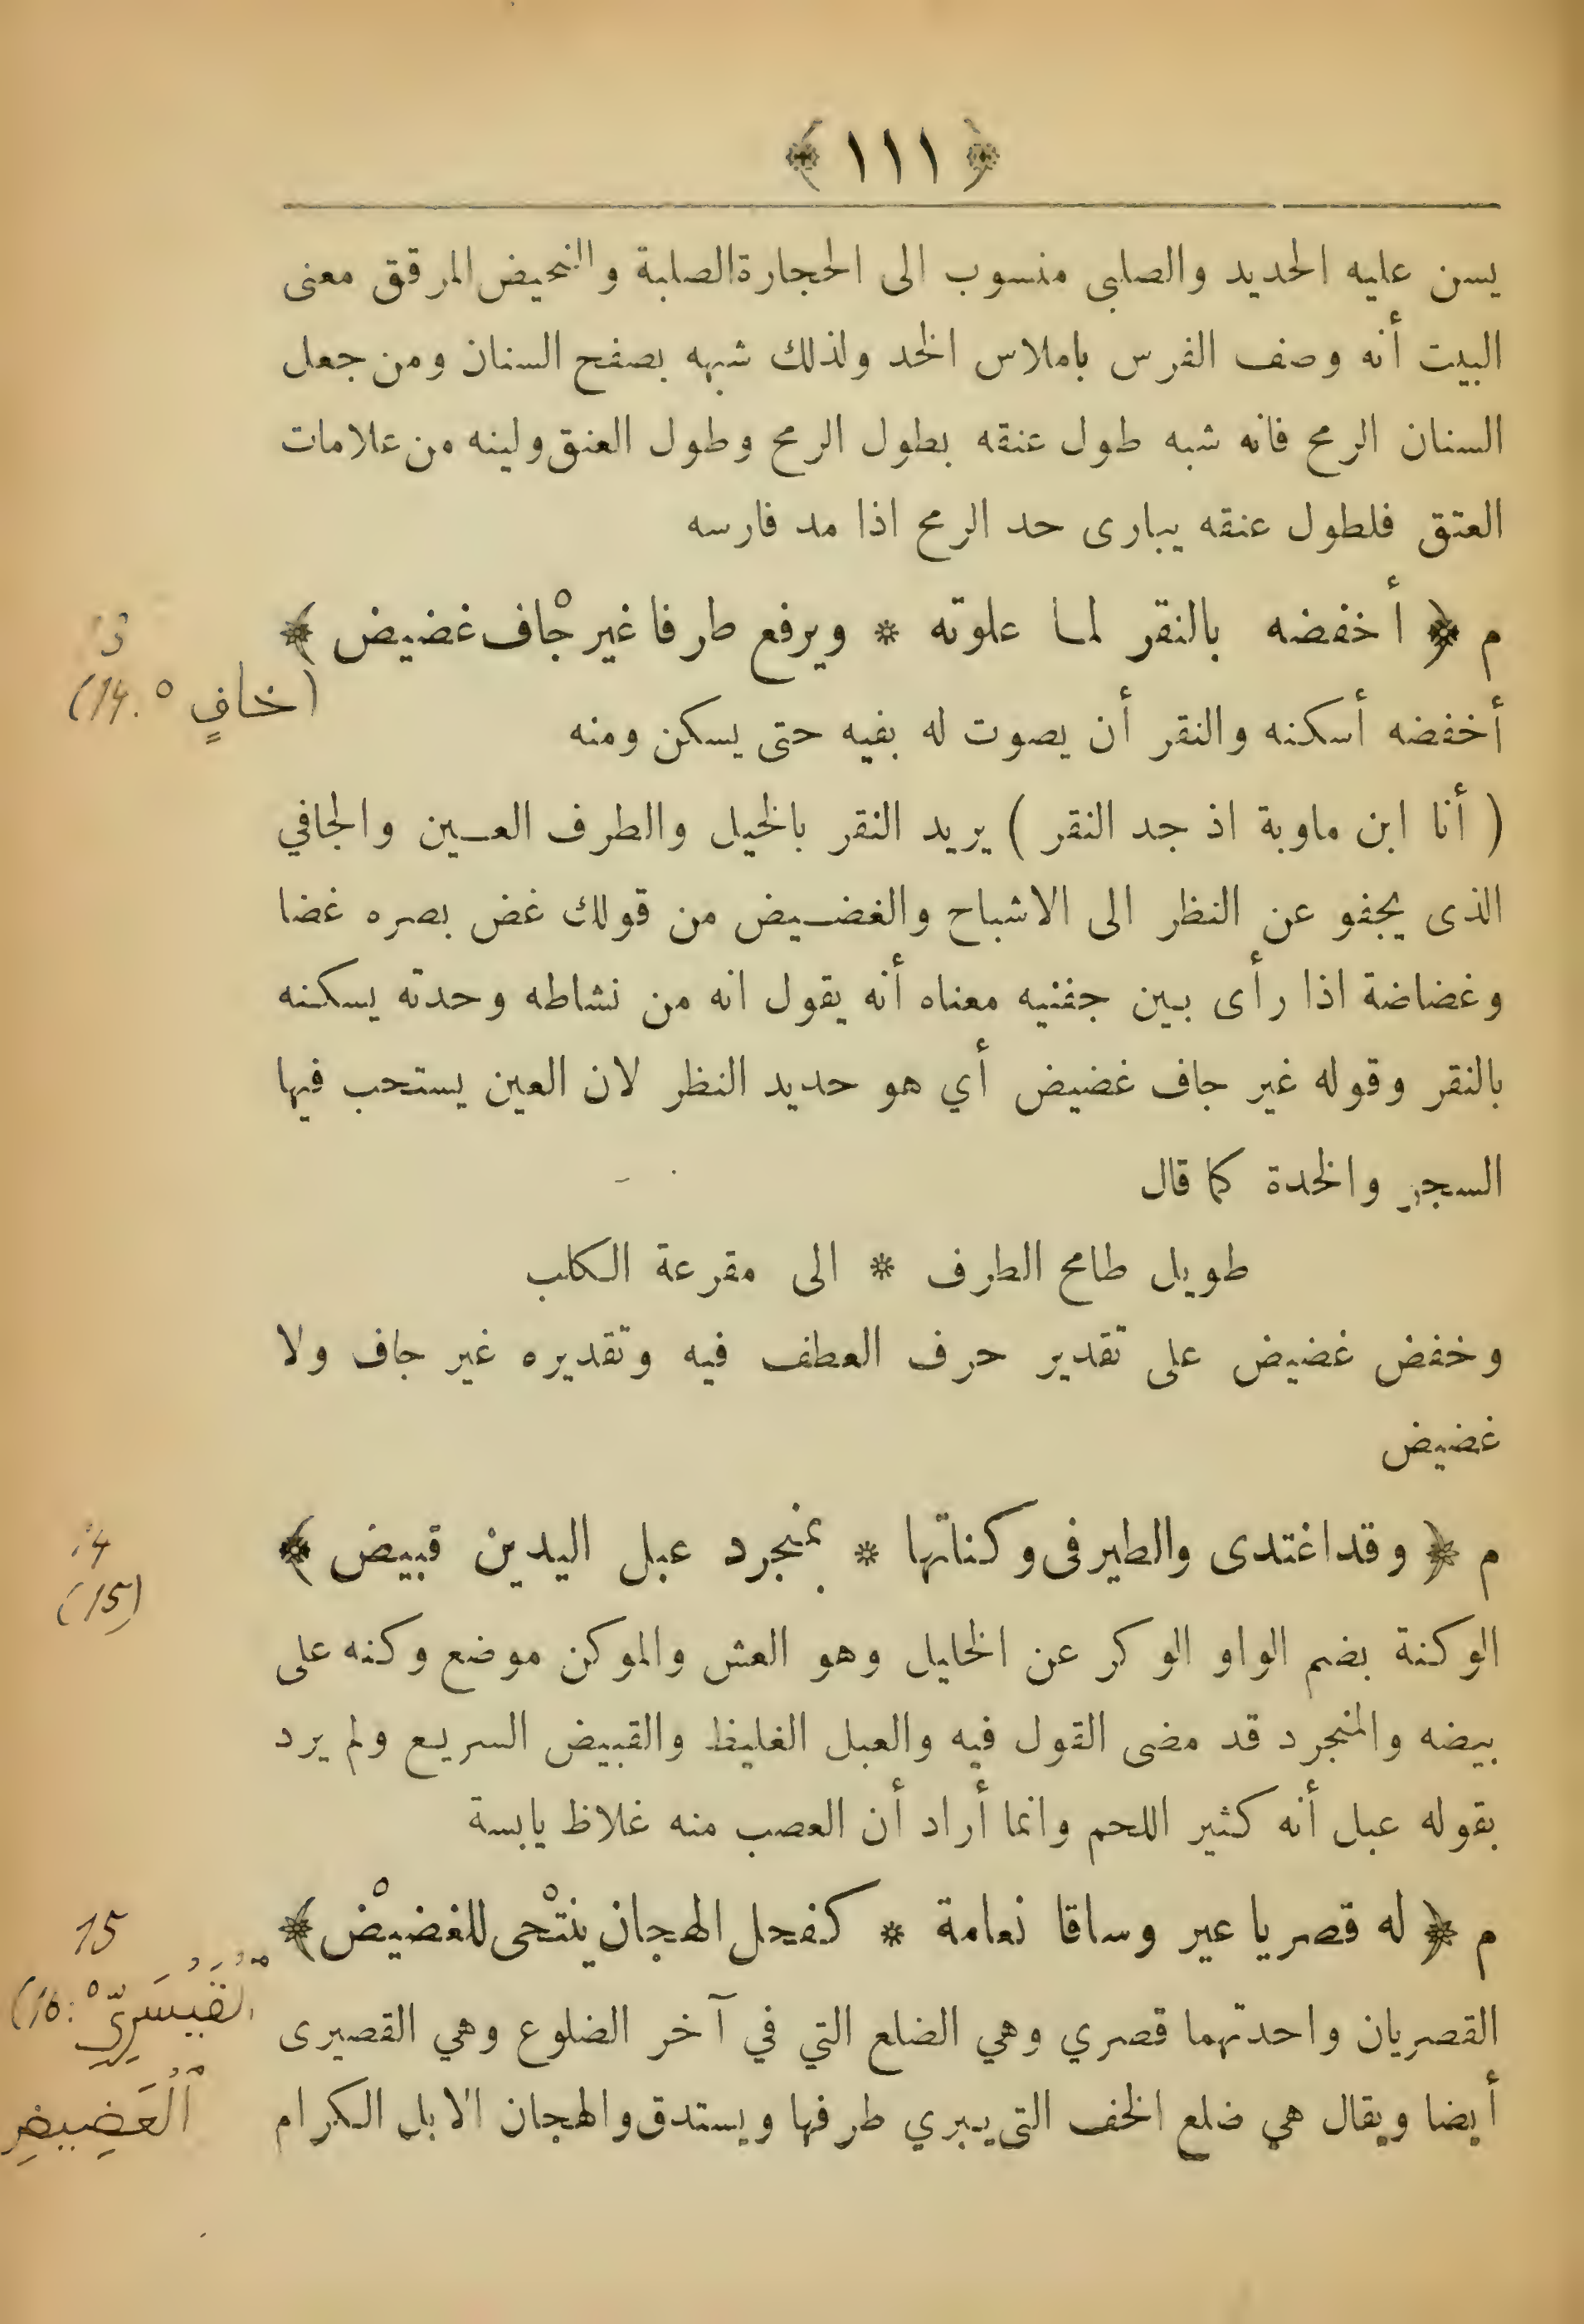 ﴿ ١١١ ﴾
يسن عليه الحديد والصلبى منسوب الى الحجارة الصلبة والنحيض المرقق معنى
البيت أنه وصف الفرس باملاس الخد ولذلك شبهه بصفح السنان ومن جعل
السنان الرمح فانه شبه طول عنقه بطول الرمح وطول العنق ولينه من علامات
العتق فلطول عنقه يبارى حد الرمح اذا مد فارسه
م ﴿ أخفضه بالنقر لما علوته * ويرفع طرفا غير جاف غضيض ﴾
13
(14.° خافٍ)
أخفضه أسكنه والنقر أن يصوت له بفيه حتى يسكن ومنه
( أنا ابن ماوية اذ جد النقر ) يريد النقر بالخيل والطرف العين والجافي
الذى يجفو عن النظر الى الاشباح والغضيض من قولك غض بصره غضا
وغضاضة اذا رأى بين جفنيه معناه أنه يقول انه من نشاطه وحدته يسكنه
بالنقر وقوله غير جاف غضيض أي هو حديد النظر لان العين يستحب فيها
السجر والخدة كما قال
طويل طامح الطرف * الى مقرعة الكلب
وخفض غضيض على تقدير حرف العطف فيه وتقديره غير جاف ولا
غضيض
م ﴿ وقد اغتدى والطير فى وكناتها * بمنجرد عبل اليدين قبيض ﴾
14
(15)
الوكنة بضم الواو الوكر عن الخليل وهو العش والموكن موضع وكنه على
بيضه والمنجرد قد مضى القول فيه والعبل الغليظ والقبيض السريع ولم يرد
بقوله عبل أنه كثير اللحم وانما أراد أن العصب منه غلاظ يابسة
م ﴿ له قصريا عير وساقا نعامة * كفحل الهجان ينتْحى للغضيضْ ﴾
15
(16:°
القصريان واحدتهما قصري وهي الضلع التي في آخر الضلوع وهي القصيرى
أيضا ويقال هي ضلع الخف التى يبري طرفها ويستدق والهجان الابل الكرام
اَلْعَضِيضِ